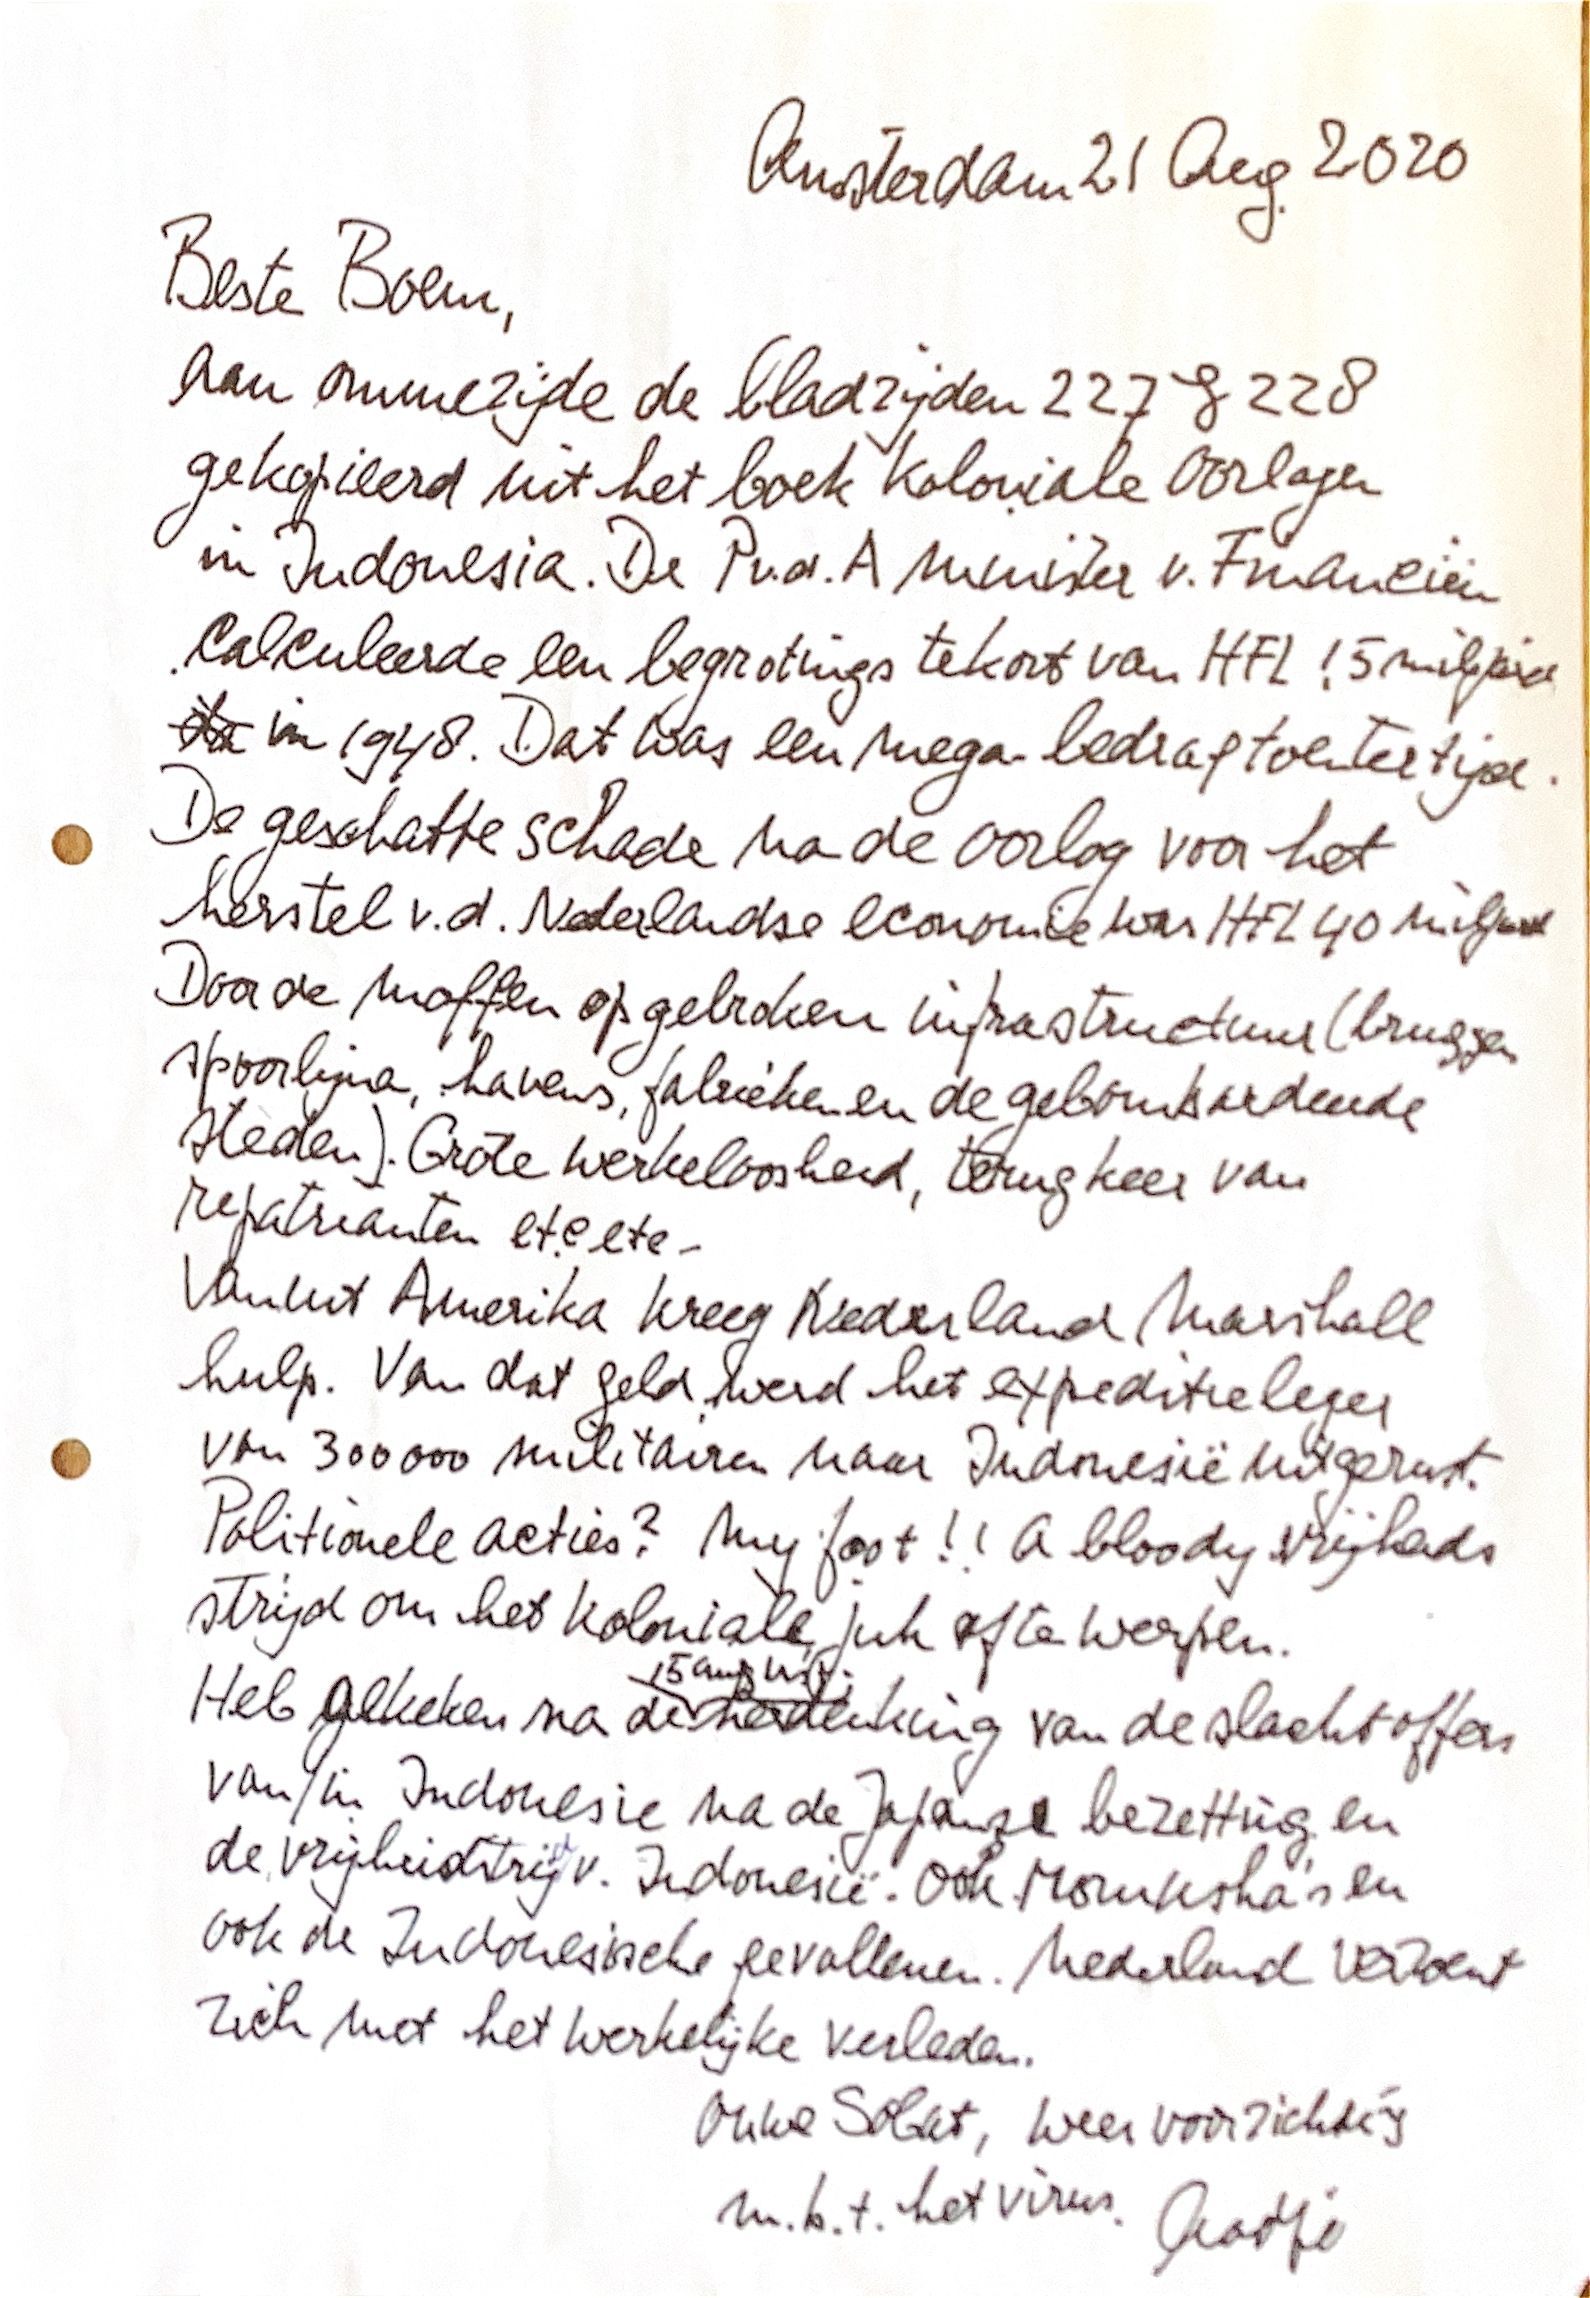 Amsterdam 21 Aug. 2020
Beste Boem,
Aan ommezijde de bladzijden 227 & 228
gekopieerd uit het boek Koloniale Oorlogen
in Indonesia. De P.v.d.A Minister v. Financiën
calculeerde een begrotings tekort van HFL 15 miljard
in 1948. Dat was een mega-bedrag toentertijd.
De geschatte schade na de oorlog voor het
herstel v.d. Nederlandse economie was HFL 40 miljard
Door de moffen opgebroken infrastructuur (bruggen
spoorlijna, havens, fabrieken en de gebombardeerde
steden). Grote werkeloosheid, terugkeer van
repatrianten etc etc -
Vanuit Amerika kreeg Nederland Marshall
hulp. Van dat geld werd het expeditieleger
van 300000 militairen naar Indonesië uitgerust.
Politionele acties? My foot!! A bloody vrijheids
strijd om het koloniale juk af te werpen.
15 aug
Heb gekeken na de herdenking van de slachtoffers
van/in Indonesie na de Japanse bezetting en
de vrijheidstrijd v. Indonesië. Ook Romusha's en
ook de Indonesische gevallenen. Nederland verzoent
zich met het werkelijke verleden.
Ouwe Sobat, wees voorzichtig
m.b.t. het virus.